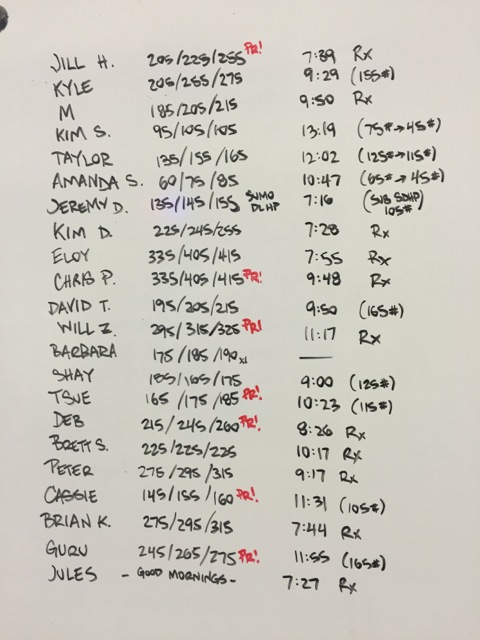 JILL H. 205/225/255 PR! 7:39 Rx
KYLE 205/255/275 9:29 (155#)
M 185/205/215 9:50 Rx
KIM S. 95/105/105 13:19 (75#→45#)
TAYLOR 135/155/165 12:02 (125#→115#)
AMANDA S. 60/75/85 10:47 (65#→45#)
JEREMY D. 135/145/155 SUMO DLHP 7:16 (SUB SDHP) 105#
KIM D. 225/245/255 7:28 Rx
ELOY 335/405/415 7:55 Rx
CHRIS P. 335/405/415 PR! 9:48 Rx
DAVID T. 195/205/215 9:50 (165#)
WILL Z. 295/315/325 PR! 11:17 Rx
BARBARA 175/185/190 x1 —
SHAY 185/165/175 9:00 (125#)
TSUE 165/175/185 PR! 10:23 (115#)
DEB 215/245/260 PR! 8:26 Rx
BRETT S. 225/225/225 10:17 Rx
PETER 275/295/315 9:17 Rx
CASSIE 145/155/160 PR! 11:31 (105#)
BRIAN K. 275/295/315 7:44 Rx
GURU 245/265/275 PR! 11:55 (165#)
JULES - GOOD MORNINGS - 7:27 Rx